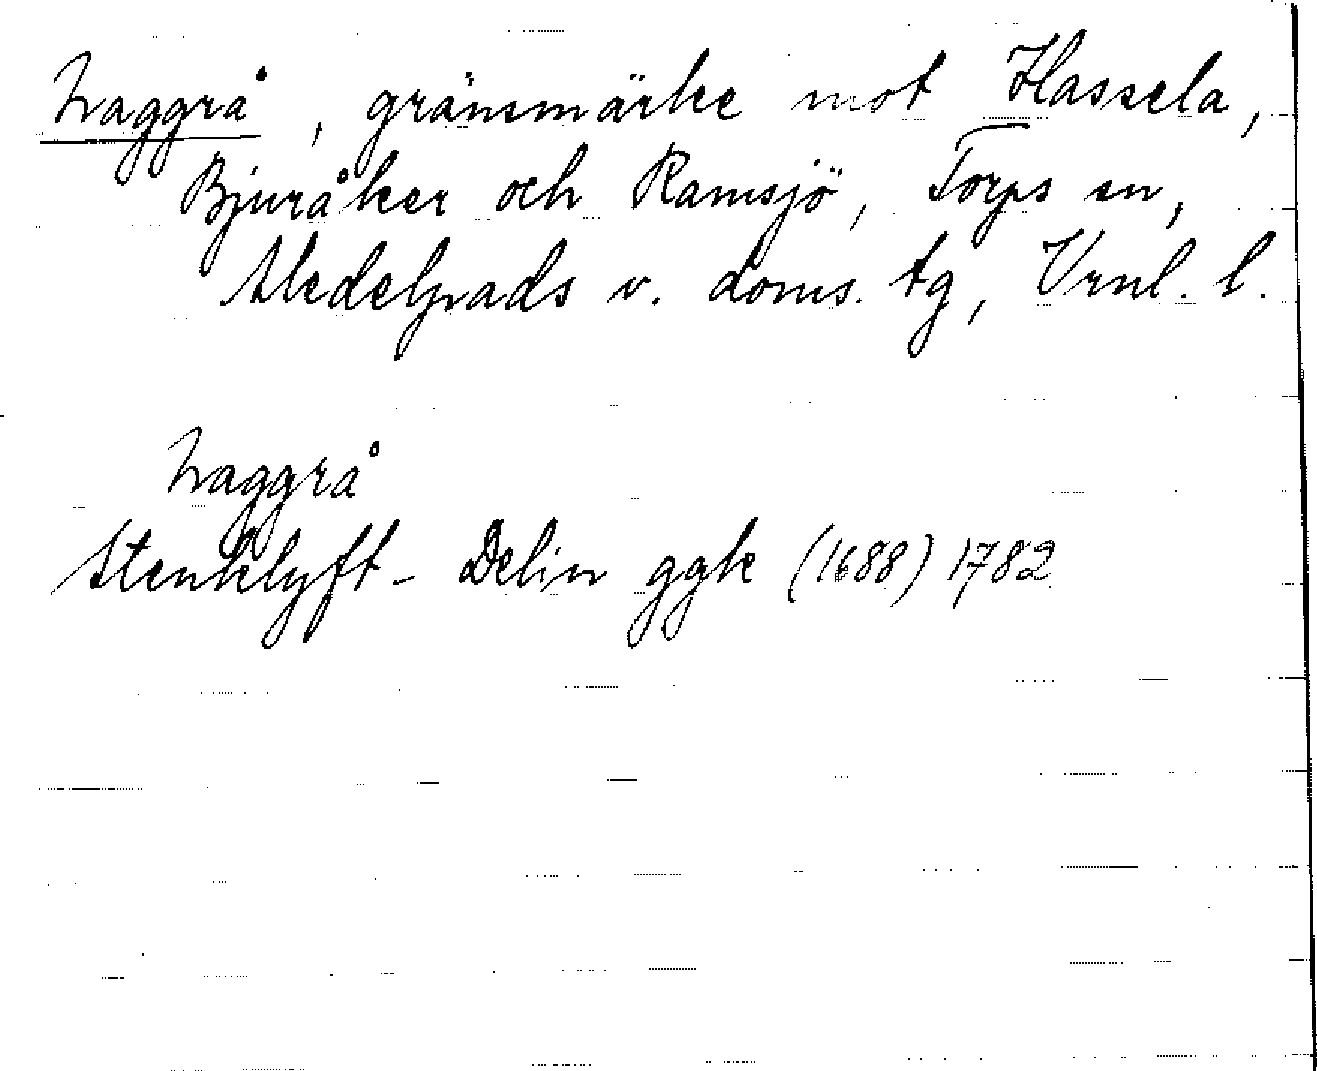 Laggrå, gränsmärke mot Hassela,
Bjuråker och Ramsjö, Torps sn,
Medelpads v. doms. tg, Vrnl. l.
Laggrå
Stenklyft - Delin ggk (1688) 1782